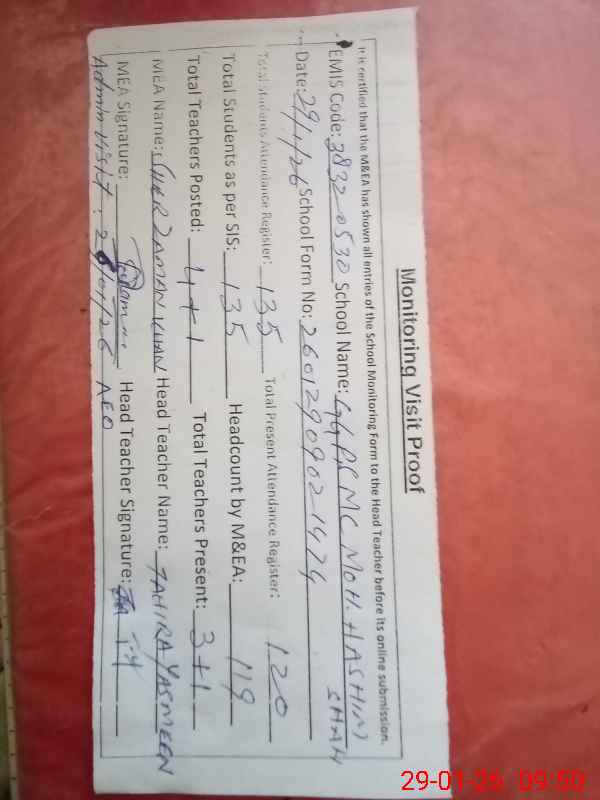 Monitoring Visit Proof
It is certified that the M&EA has shown all entries of the School Monitoring Form to the Head Teacher before its online submission.
EMIS Code: 38320530 School Name: GGPS MC MOH. HASHIM SHAH
Date: 29/1/26 School Form No: 26012909021424
Total Students Attendance Register: 135 Total Present Attendance Register: 120
Total Students as per SIS: 135 Headcount by M&EA: 119
Total Teachers Posted: 4+1 Total Teachers Present: 3+1
MEA Name: SHER ZAMAN KHAN Head Teacher Name: TAHIRA YASMEEN
MEA Signature: Head Teacher Signature:
Admin Visit: /01/26 AEO
29-01-26 09:50